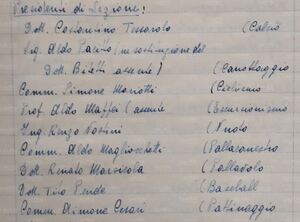 Presidenti di Sezione:
Dott. Costantino Tessarolo (Calcio
Ing. Aldo Pacito (in sostituzione del
Dott. Biletti assente) (Canottaggio
Comm. Simone Mariotti (Ciclismo
Prof. Aldo Maffei (assente (Escursionismo
Ing. Renzo Nostini (Nuoto
Comm. Aldo Magliocchetti (Pallacanestro
Dott. Renato Marsicola (Pallavolo
Dott. Tito Pende (Baseball
Comm. Simone Cesari (Pattinaggio